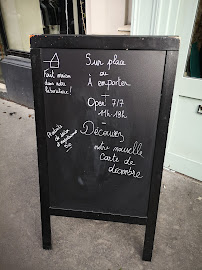 Fait maison
dans notre
laboratoire !
Sur place
ou
À emporter
Open 7/7
11h-18h
Produits
de saison
Découvrez
notre nouvelle
Carte de
décembre